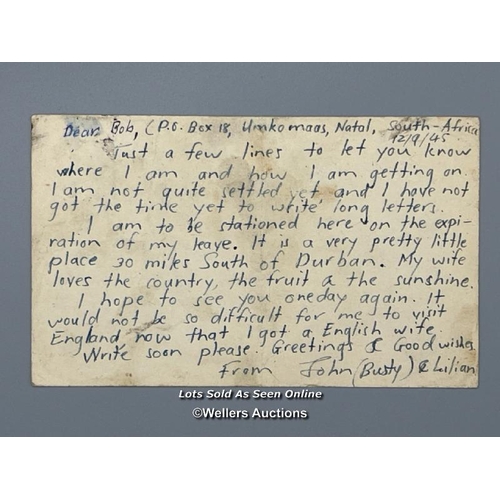 Dear Bob, (P.O. Box 18, Umkomaas, Natal, South-Africa
12/9/45
Just a few lines to let you know
where I am and how I am getting on.
I am not quite settled yet and I have not
got the time yet to write long letters.
I am to be stationed here on the expi-
ration of my leave. It is a very pretty little
place 30 miles South of Durban. My wife
loves the country, the fruit & the sunshine.
I hope to see you oneday again. It
would not be so difficult for me to visit
England now that I got a English wife.
Write soon please. Greetings & Good wishes
from John (Busty) & Lilian
Lots Sold As Seen Online
©Wellers Auctions